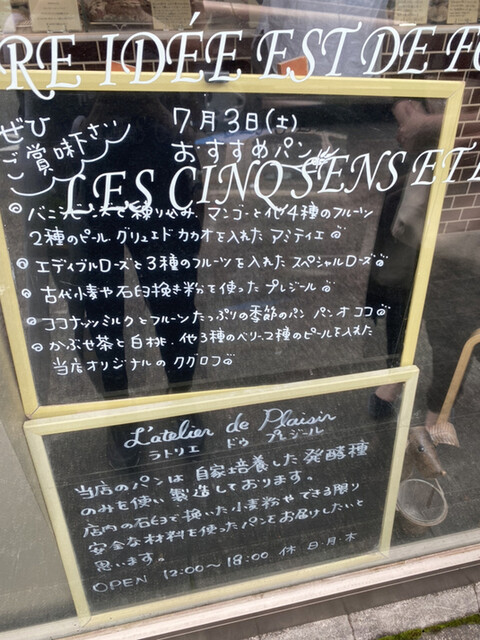 RE IDÉE EST DE FO
ぜひ
ご賞味下さい
7月3日(土)
おすすめパン
LES CINQ SENS ET L
バニラビーンズで練り込み、マンゴーと他4種のフルーツ
2種のピール、グリュエドカカオを入れた アミティエ
エディブルローズと3種のフルーツを入れた スペシャルローズ
古代小麦や石臼挽き粉を使った プレジール
ココナッツミルクとフルーツたっぷりの季節のパン パンオココ
かぶせ茶と白桃、他3種のベリー、2種のピールを入れた
当店オリジナルの ククロフ
L'atelier de Plaisir
ラトリエ ドゥ プレジール
当店のパンは 自家培養した発酵種
のみを使い 製造しております。
店内の石臼で挽いた小麦粉やできる限り
安全な材料を使ったパンをお届けしたいと
思います。
OPEN 12:00〜18:00 休 日・月・木